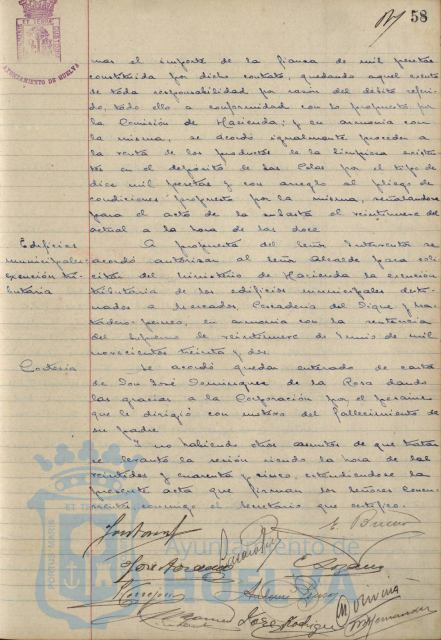 58
AYUNTAMIENTO DE HUELVA
mas el importe de la fianza de mil pesetas
constituida por dicho contrato, quedando aquel exento
de toda responsabilidad por razón del débito referi-
do, todo ello a conformidad con lo propuesto por
la Comisión de Hacienda; y en armonía con
la misma, se acordó igualmente proceder a
la venta de los productos de la limpieza existen-
tes en el depósito de las Colas por el tipo de
diez mil pesetas y con arreglo al pliego de
condiciones propuesto por la misma, señalándose
para el acto de la subasta el veintinueve del
actual a la hora de las doce
Edificios municipales: exención tri- butaria
A propuesta del Señor Interventor se
acordó autorizar al Señor Alcalde para soli-
citar del Ministerio de Hacienda la exención
tributaria de los edificios municipales desti-
nados a Mercados, Pescadería del Dique y Ma-
tadero, en armonía con la sentencia
del Supremo de veintinueve de Junio de mil
novecientos treinta y dos.
Cortesía
Se acordó quedar enterado de carta
de Don José Domínguez de la Rosa dando
las gracias a la Corporación por el pésame
que le dirigió con motivo del fallecimiento de
su padre
Y no habiendo otros asuntos de que tratar
se levantó la sesión siendo la hora de las
veintidós y cuarenta y cinco, extendiéndose la
presente acta que firman los Señores Concu-
rrentes conmigo el Secretario que certifico.
Ayuntamiento de
HUELVA